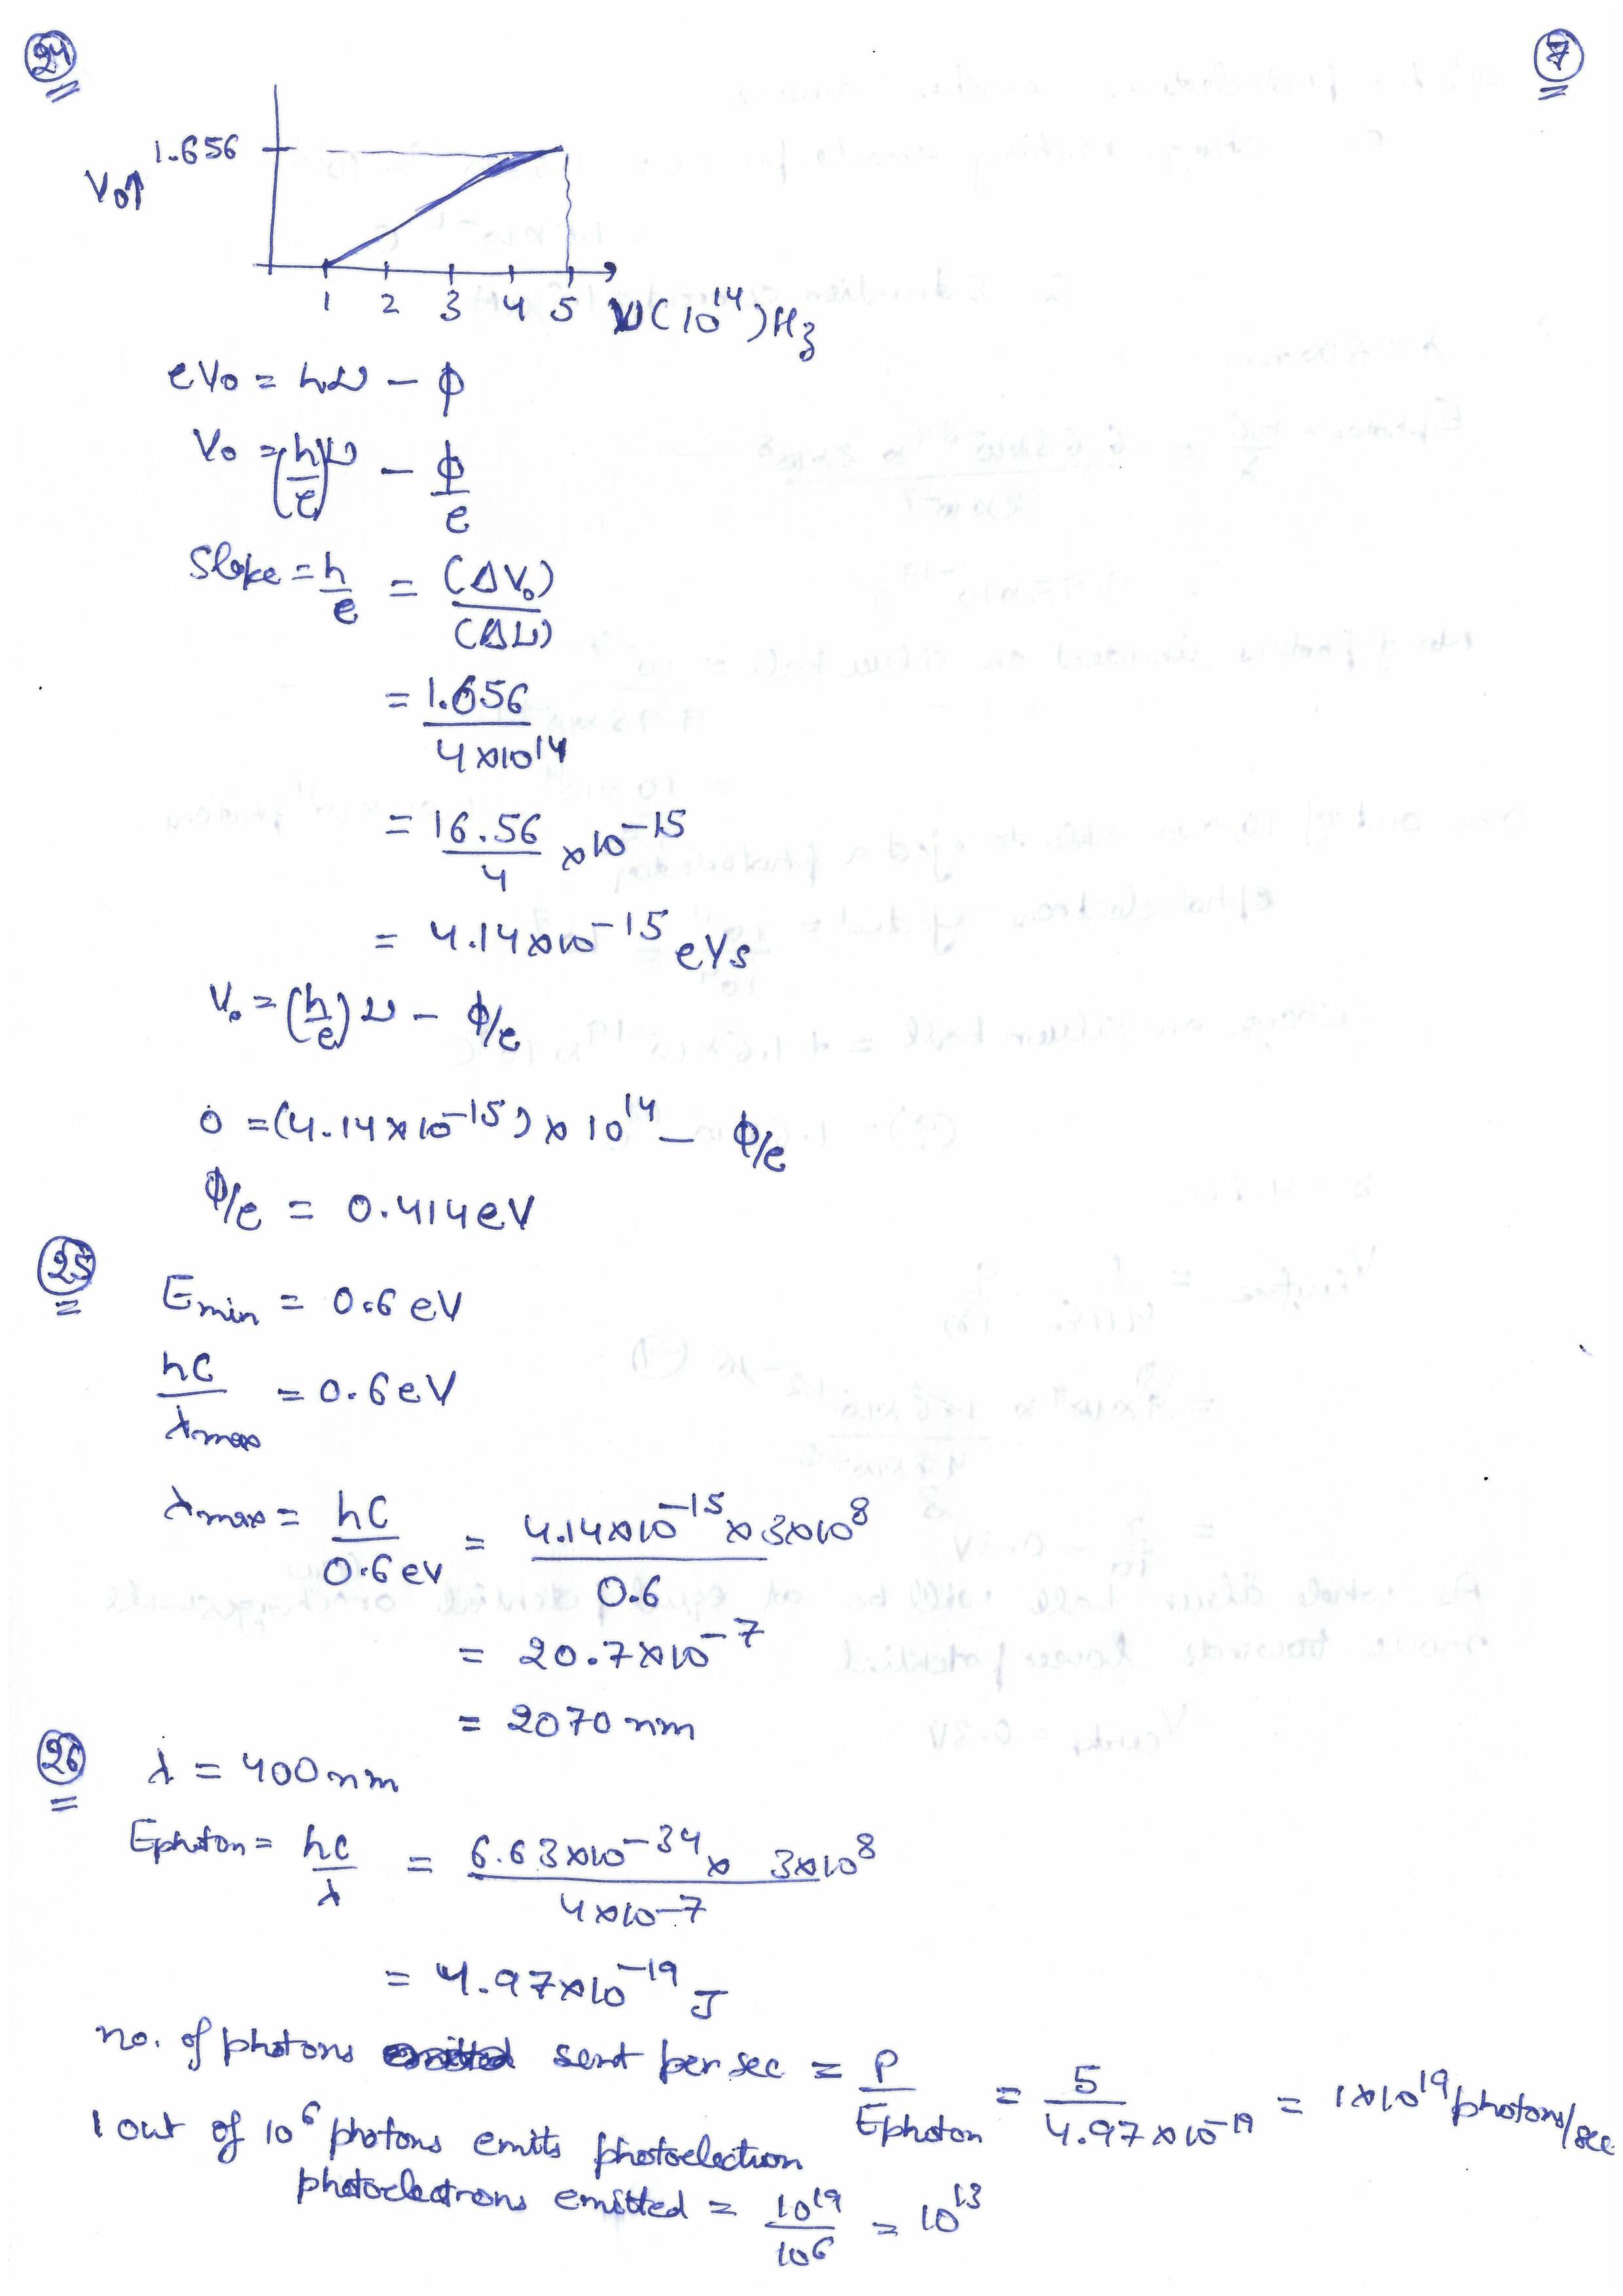 24
7
1.656
V₀↑
1 2 3 4 5 ν(10¹⁴)Hz
eV₀ = hν - ϕ
V₀ = (h/e)ν - ϕ/e
Slope = h/e = (ΔV₀)/(Δν)
= 1.656/4×10¹⁴
= 16.56/4 ×10⁻¹⁵
= 4.14×10⁻¹⁵ eVs
V₀ = (h/e)ν - ϕ/e
0 = (4.14×10⁻¹⁵)×10¹⁴ - ϕ/e
ϕ/e = 0.414eV
25
Emin = 0.6 eV
hC/λmax = 0.6eV
λmax = hC/0.6ev = 4.14×10⁻¹⁵×3×10⁸/0.6
= 20.7×10⁻⁷
= 2070nm
26
λ = 400nm
Ephoton = hc/λ = 6.63×10⁻³⁴× 3×10⁸/4×10⁻⁷
= 4.97×10⁻¹⁹ J
no. of photons sent per sec = P/Ephoton = 5/4.97×10⁻¹⁹ = 1×10¹⁹photons/sec
1 out of 10⁶ photons emits photoelection
photoelectrons emitted = 10¹⁹/10⁶ = 10¹³